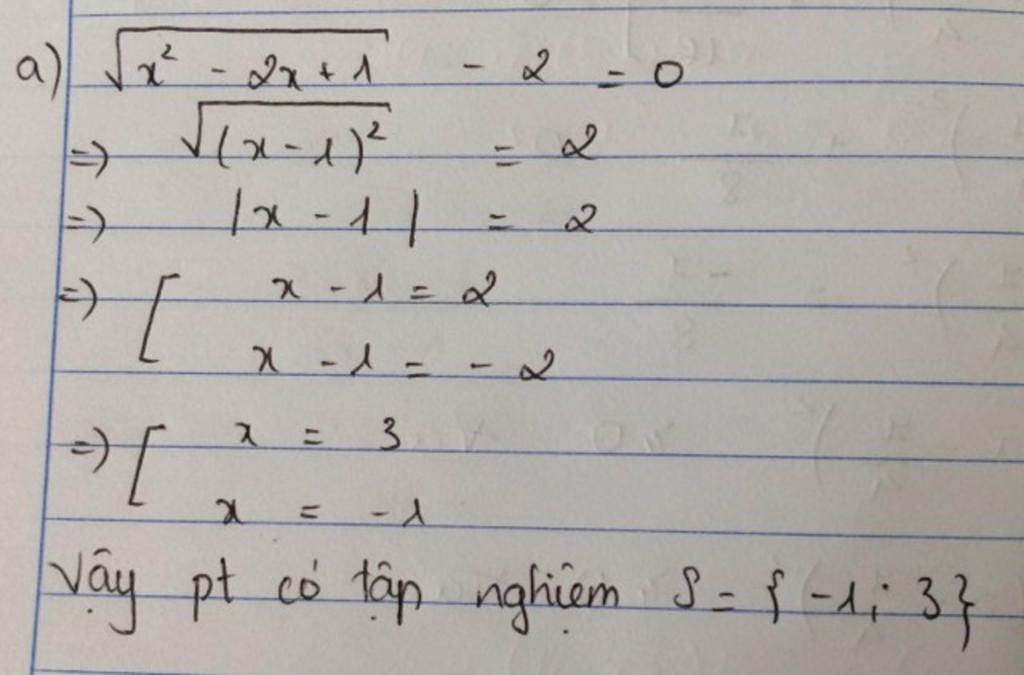 a) √(x² - 2x + 1) - 2 = 0
=> √((x - 1)²) = 2
=> |x - 1| = 2
=> [ x - 1 = 2
x - 1 = - 2
=> [ x = 3
x = -1
Vậy pt có tập nghiệm S = {-1; 3}